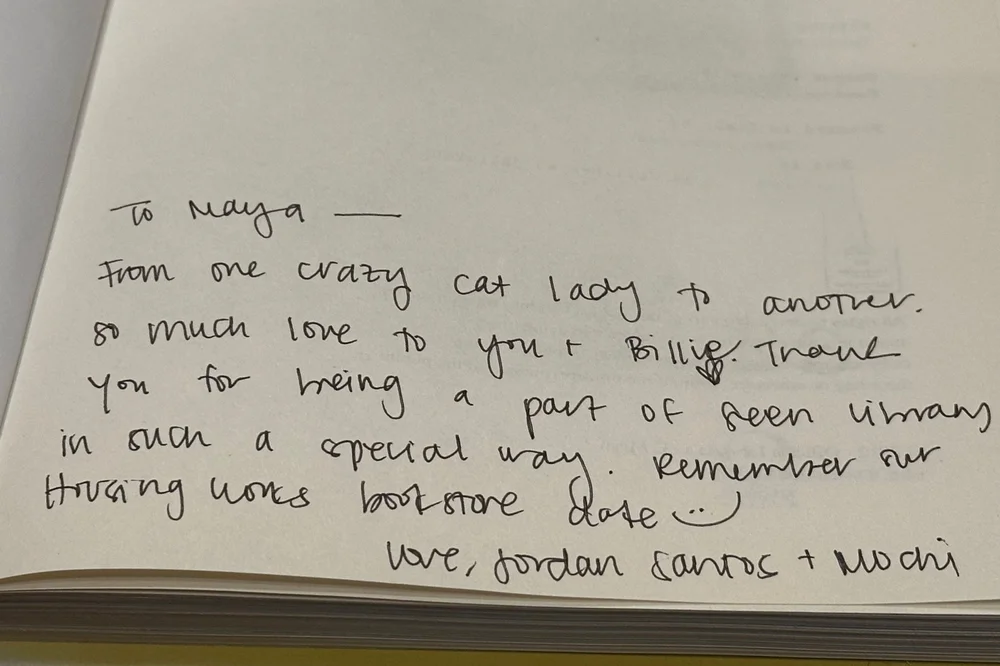 To Maya —
From one crazy cat lady to another.
so much love to you + Billie. Thank
you for being a part of Seen Library
in such a special way. Remember our
Housing Works bookstore date
Love, Jordan Santos + Mochi